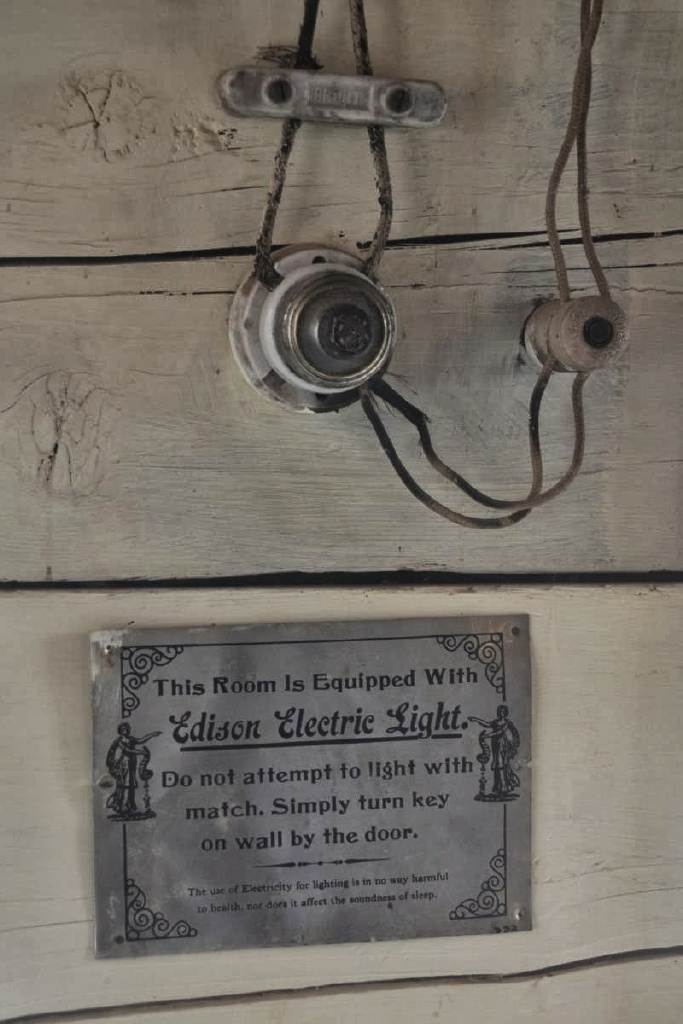 This Room Is Equipped With
Edison Electric Light.
Do not attempt to light with
match. Simply turn key
on wall by the door.
The use of Electricity for lighting is in no way harmful
to health, nor does it affect the soundness of sleep.